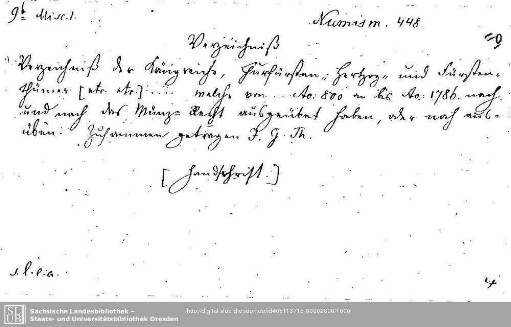 9b Misc. 1.
Numism. 448
Verzeichniß
Verzeichniß der Königreiche, Churfürsten-, Hertzog- und Fürsten-
thümer [etc. etc.] ... welche von Ao: 800 bis Ao: 1786 nach
und nach das Münz-Recht ausgeübet haben, oder noch aus-
üben. Zusammen getragen J. G. Th.
[Handschrift.]
s. l. e. a.
Sächsische Landesbibliothek –
Staats- und Universitätsbibliothek Dresden